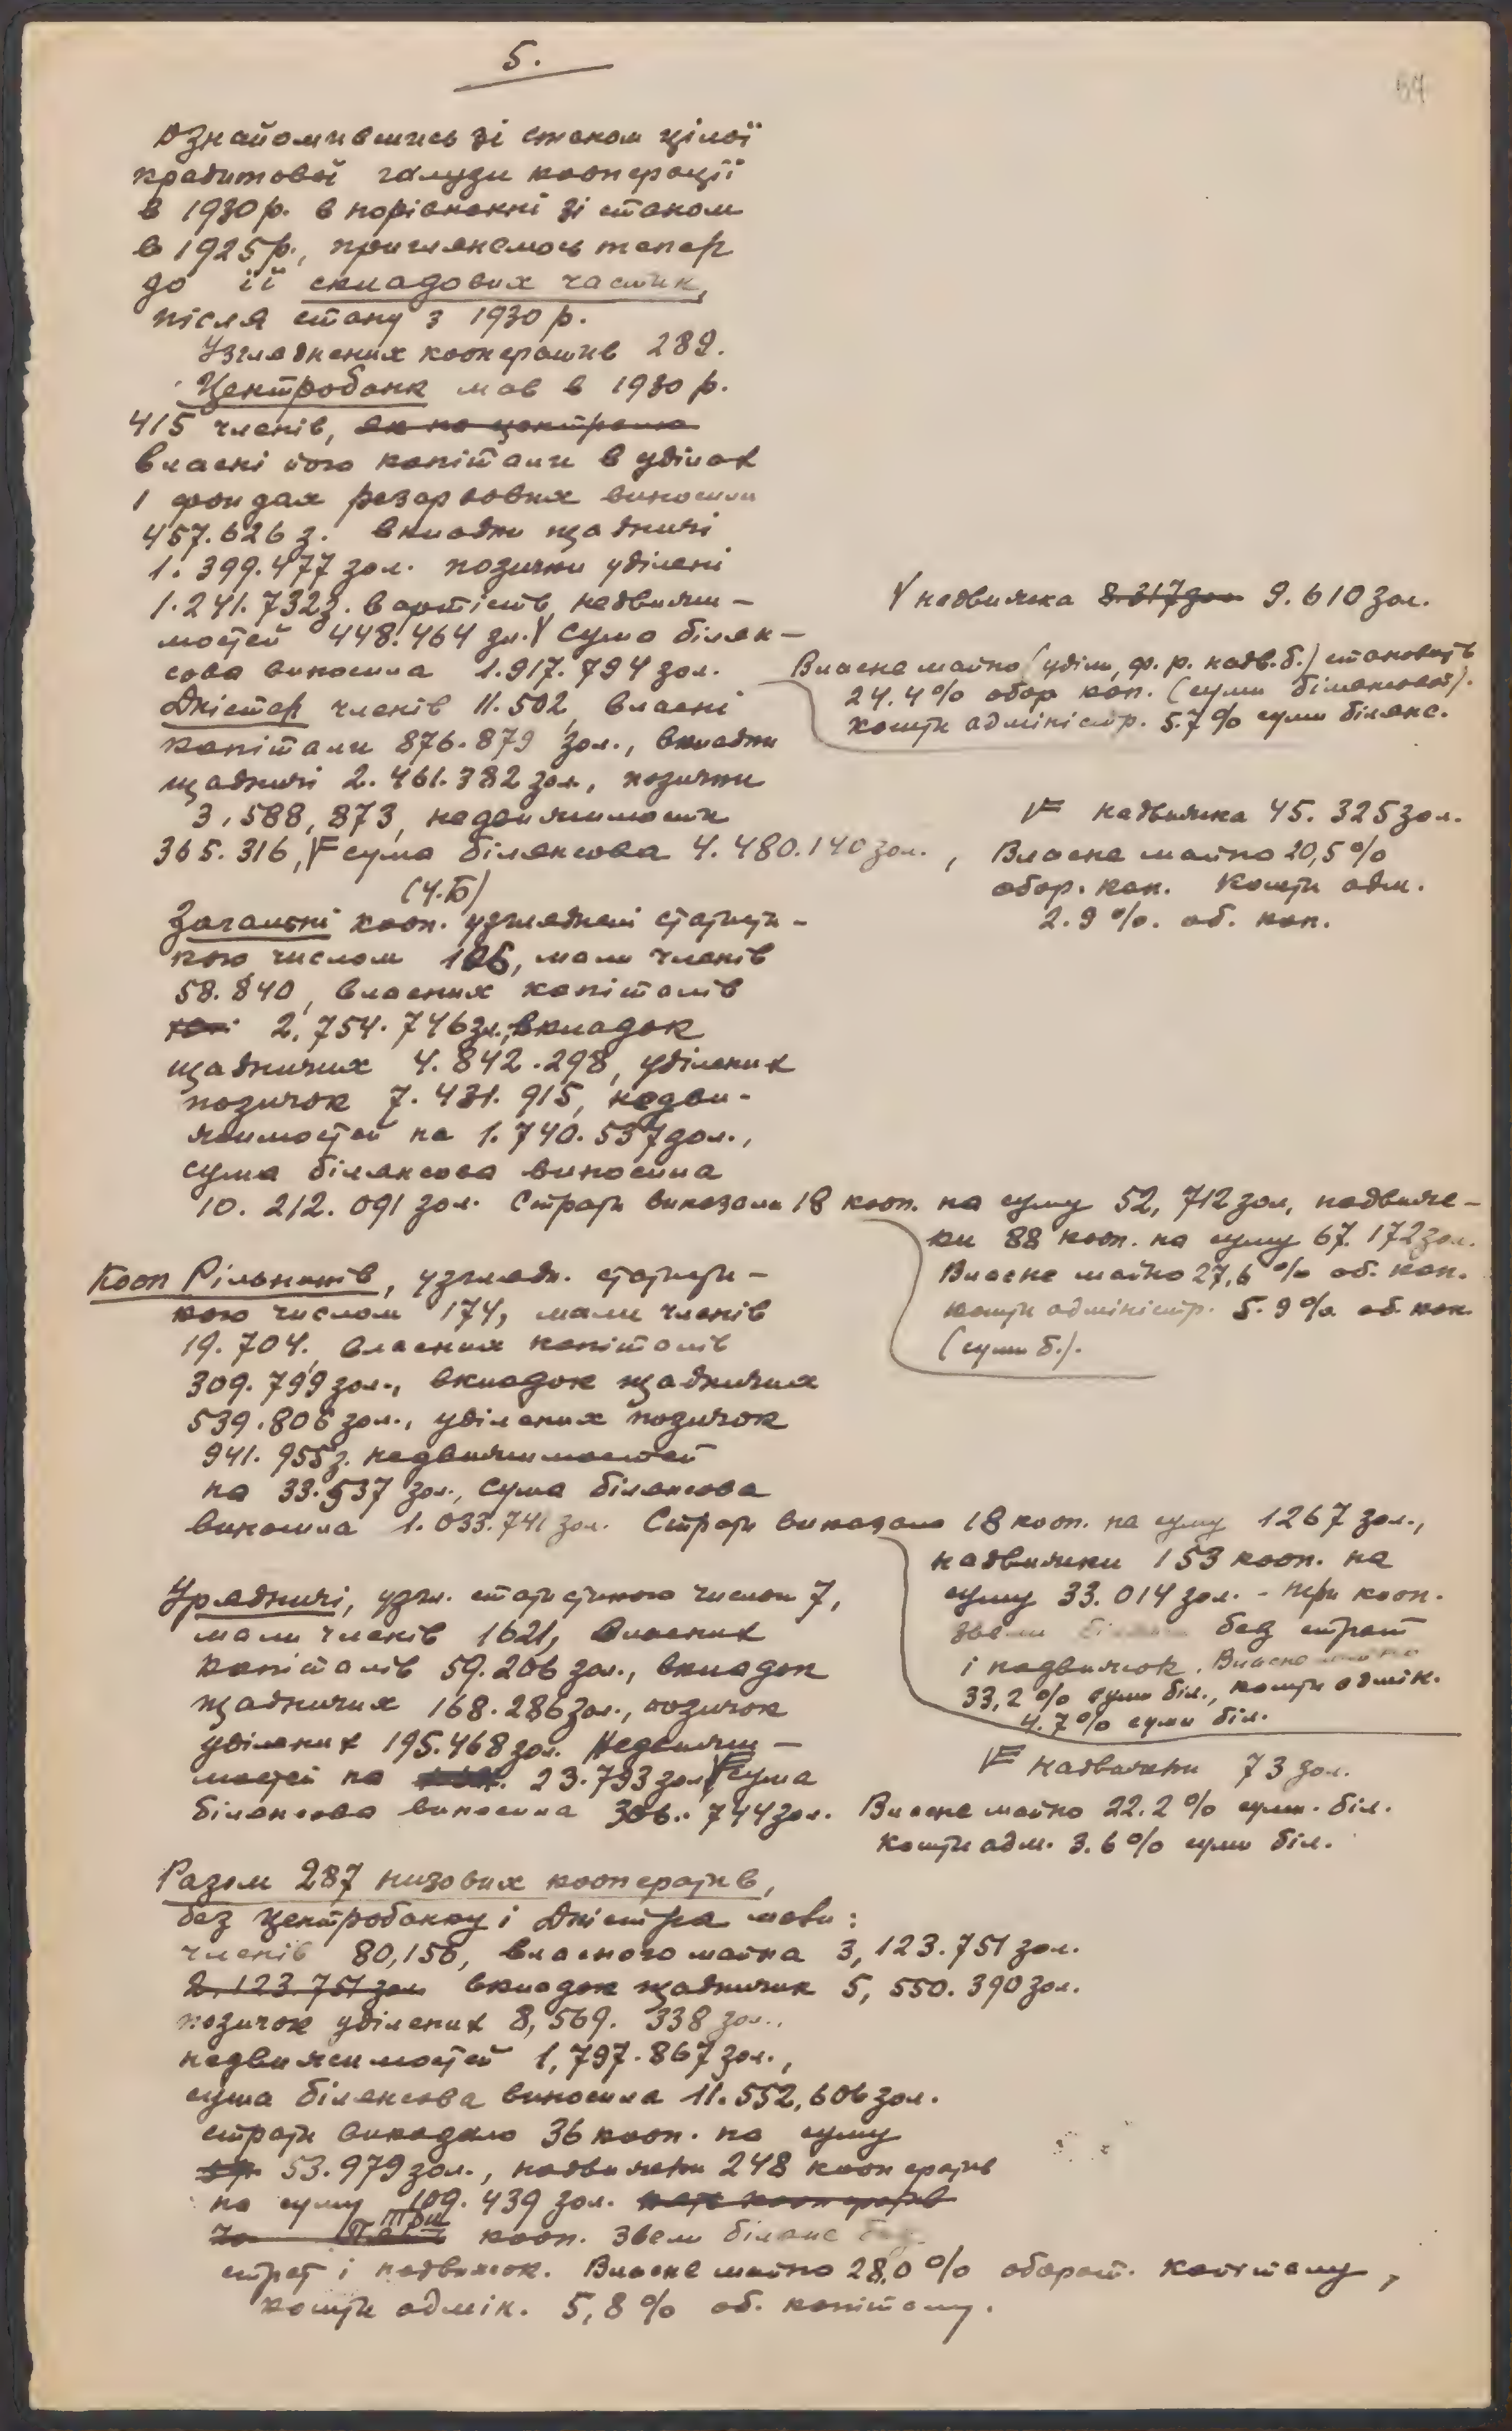 5.
Ознайомившись зі станом цілої
кредитової галузи кооперації
в 1930 р. в порівнанні зі станом
в 1925 р., приглянемось тепер
до її складових частин,
після стану з 1930 р.
Узгляднених кооператив 289.
Центробанк мав в 1930 р.
415 членів, як на централю
власні його капітали в уділах
і фондах резервових виносили
457.626 з. вкладки щадничі
1.399.477 зол. позички уділені
1.241.732 з. вартість недвижи-
мостей 448.464 зл. Y сума білян-
сова виносила 1.917.794 зол.
Y надвижка 8.317 зол 9.610 зол.
Власне майно (уділи, ф. р. надв. б.) становить
24.4% обор кап. (суми білянсової).
кошти адміністр. 5.7% суми білянс.
Дністер членів 11.502, власні
капітали 876.879 зол., вкладки
щадничі 2.461.382 зол., позички
3,588,873, недвижимости
365.316, F сума білянсова 4.480.140 зол.,
F надвижка 45.325 зол.
Власне майно 20,5%
обор. кап. Кошти адм.
2.9%. об. кап.
(Ч.Б)
Загальні кооп. узгляднені статисти-
кою числом 106, мали членів
58.840, власних капіталів
2,754.746 зл., вкладок
щадничих 4.842.298, уділених
позичок 7.431.915, недви-
жимостей на 1.740.537 зол.,
сума білянсова виносила
10.212.091 зол. Страти виказали 18 кооп. на суму 52,712 зол, надвиж-
ки 88 кооп. на суму 67.172 зол.
Власне майно 27,6% об. кап.
кошти адміністр. 5.9% об. кап.
(суми б.).
Кооп Рільників, узглядн. статисти-
кою числом 174, мали членів
19.704, власних капіталів
309.799 зол., вкладок щадничих
539.806 зол., уділених позичок
941.955 з. недвижимостей
на 33.537 зол., сума білянсова
виносила 1.033.741 зол. Страти виказало 18 кооп. на суму 1267 зол.,
надвижки 153 кооп. на
суму 33.014 зол. - три кооп.
звели білянс без страт
і надвижок. Власне майно
33,2% суми біл., кошти адмін.
4.7% суми біл.
Урядничі, узгл. статистикою числом 7,
мали членів 1621, власних
капіталів 59.206 зол., вкладок
щадничих 168.286 зол., позичок
уділених 195.468 зол. Недвижи-
мостей на 23.793 зол F сума
білянсова виносила 306.744 зол.
F надвижки 73 зол.
Власне майно 22.2% сум. біл.
кошти адм. 3.6% суми біл.
Разом 287 низових кооператив,
без Центробанку і Дністра мали:
членів 80,156, власного майна 3,123.751 зол.
2.123.751 зол вкладок щадничих 5,550.390 зол.
позичок уділених 8,569.338 зол.,
недвижимостей 1,797.867 зол.,
сума білянсова виносила 11.552,606 зол.
страти виказало 36 кооп. на суму
53.979 зол., надвижки 248 кооператив
на суму 109.439 зол.
три кооп. звели білянс без
страт і надвижок. Власне майно 28,0% оборот. капіталу,
кошти адмін. 5,8% об. капіталу.